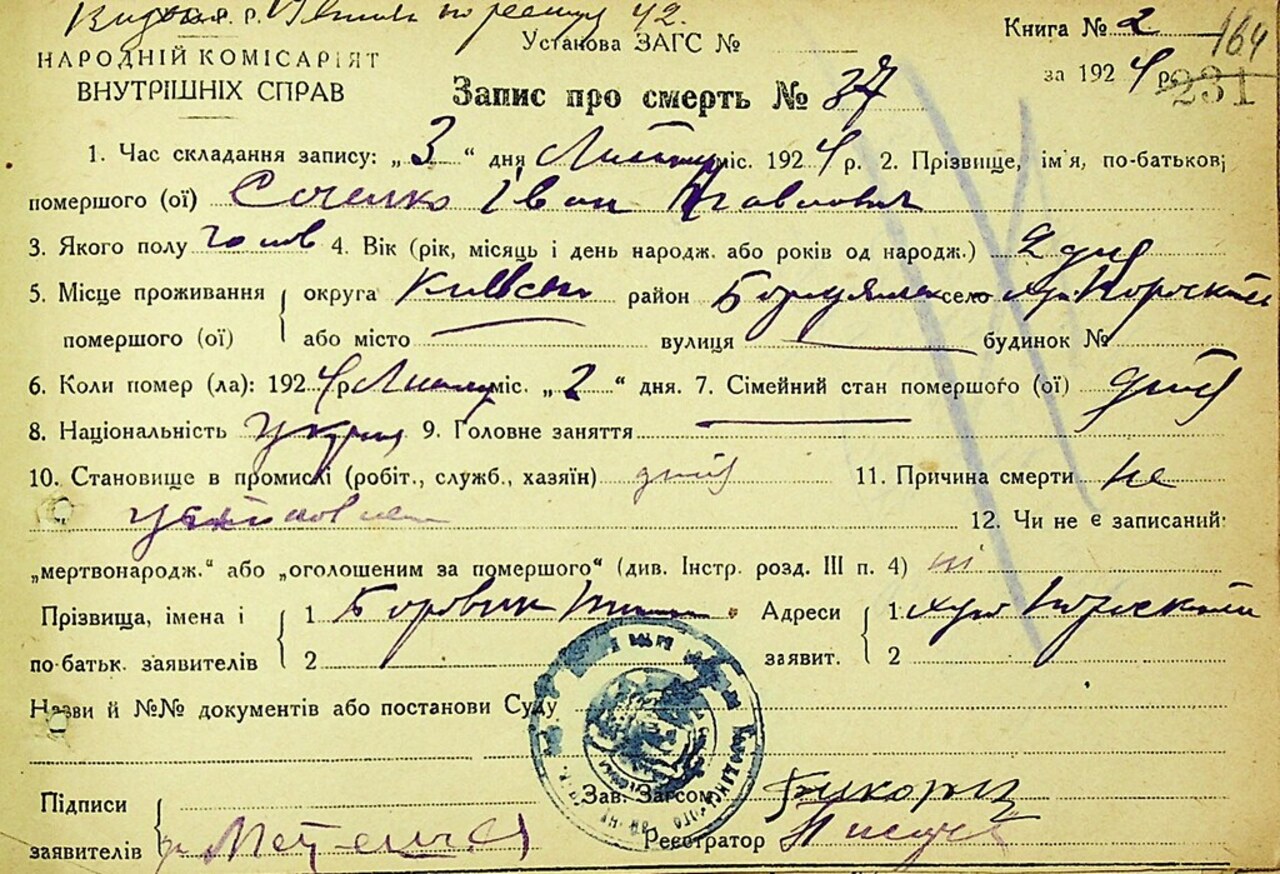 по реєстру 42.
Р. Р.
Установа ЗАГС №
Книга № 2
164
НАРОДНІЙ КОМІСАРІЯТ
ВНУТРІШНІХ СПРАВ
за 1924 р.
231
Запис про смерть № 37
1. Час складання запису: „3“ дня Лютого міс. 1924 р. 2. Прізвище, ім'я, по-батькові
помершого (ої) Іван Павлович
3. Якого полу чолов 4. Вік (рік, місяць і день народж. або років од народж.) 2 дня
5. Місце проживання округа Київськ район село
помершого (ої) або місто вулиця будинок №
6. Коли помер (ла): 1924 р Лютого міс. „2“ дня. 7. Сімейний стан помершого (ої)
8. Національність Україн 9. Головне заняття
10. Становище в промислі (робіт., служб., хазяїн) 11. Причина смерти не
12. Чи не є записаний:
„мертвонародж.“ або „оголошеним за помершого“ (див. Інстр. розд. III п. 4) ні
Прізвища, імена і 1 Боровик Адреси 1
по-батьк. заявителів 2 заявит. 2
Назви й №№ документів або постанови Суду
Підписи
Зав. Загсом
заявителів
Реєстратор